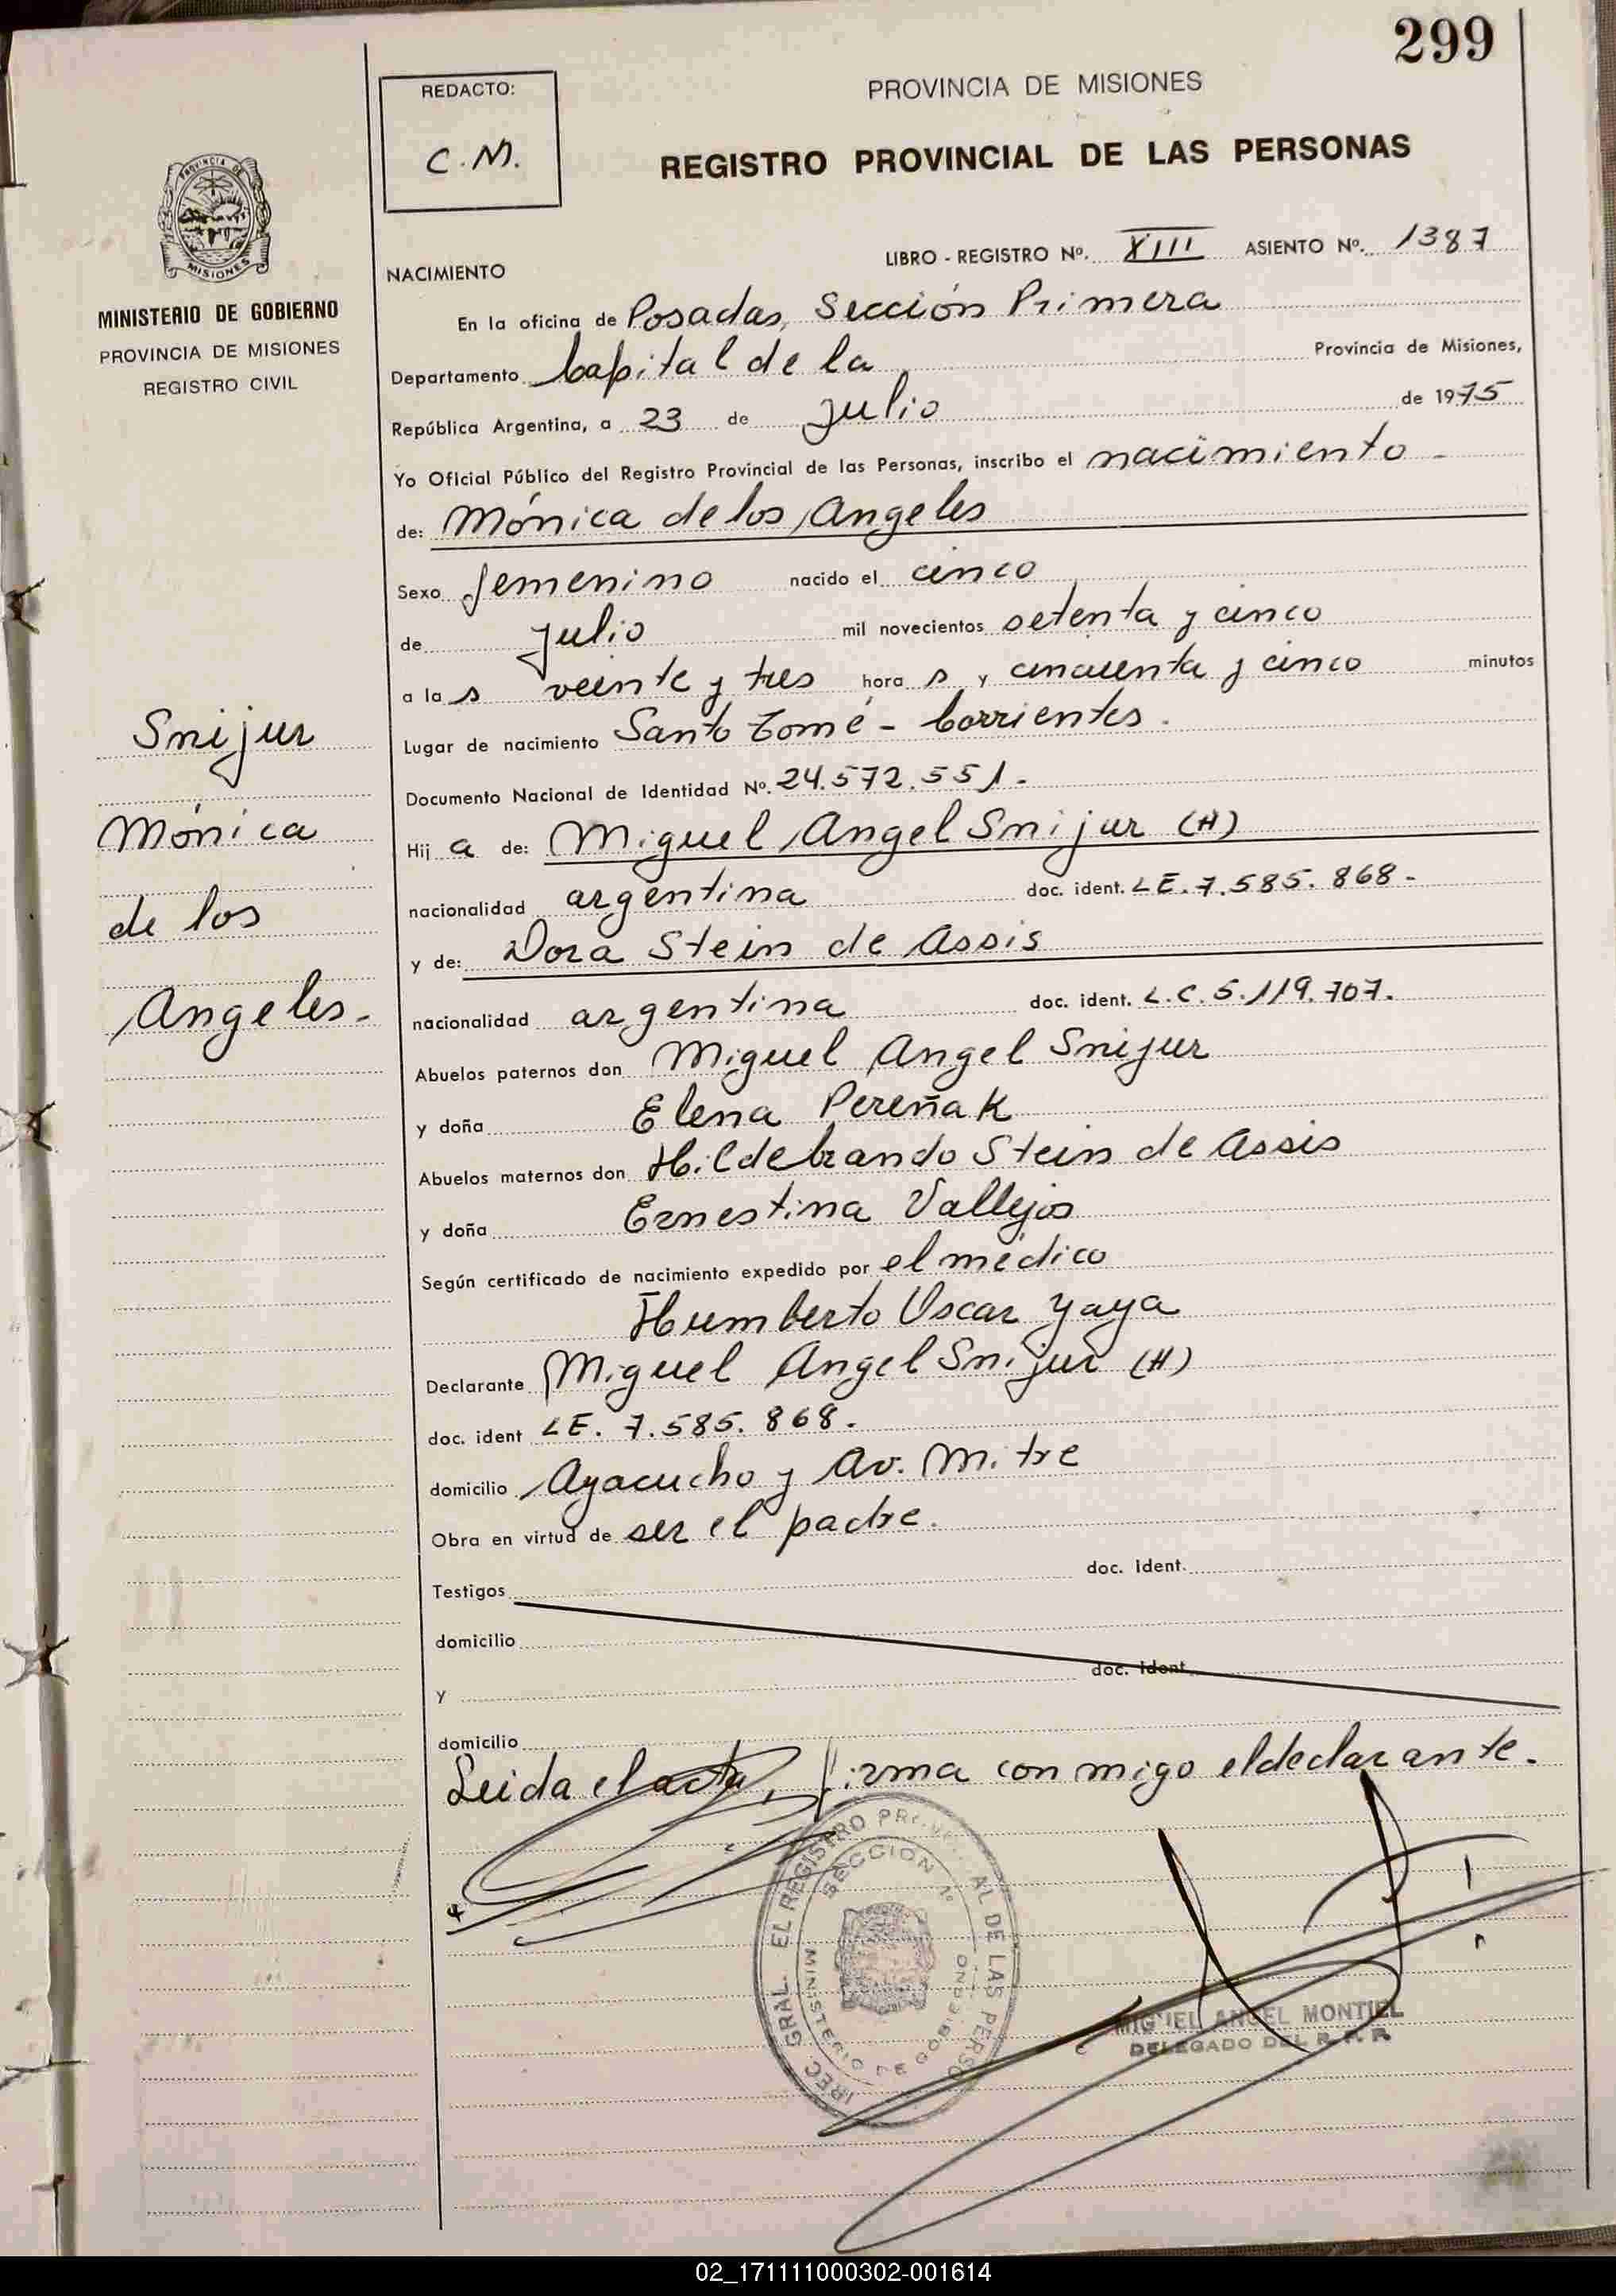 299
REDACTO:
C.M.
PROVINCIA DE MISIONES
REGISTRO PROVINCIAL DE LAS PERSONAS
PROVINCIA DE MISIONES
MINISTERIO DE GOBIERNO
PROVINCIA DE MISIONES
REGISTRO CIVIL
LIBRO - REGISTRO Nº. XIII ASIENTO Nº. 1387
NACIMIENTO
En la oficina de Posadas, Sección Primera
Departamento Capital de la Provincia de Misiones,
República Argentina, a 23 de Julio de 1975
Yo Oficial Público del Registro Provincial de las Personas, inscribo el nacimiento -
de: Mónica de los Angeles
Sexo femenino nacido el cinco
de Julio mil novecientos setenta y cinco
a la s veinte y tres hora s y cincuenta y cinco minutos
Lugar de nacimiento Santo Tomé - Corrientes.
Documento Nacional de Identidad Nº. 24.572.551.
Hij a de: Miguel Angel Snijur (H)
nacionalidad argentina doc. ident. LE. 7.585.868-
y de: Dora Stein de Assis
nacionalidad argentina doc. ident. L.C. 5.119.707.
Abuelos paternos don Miguel Angel Snijur
y doña Elena Pereñak
Abuelos maternos don Hildebrando Stein de Assis
y doña Ernestina Vallejos
Según certificado de nacimiento expedido por el médico
Humberto Oscar Yaya
Declarante Miguel Angel Snijur (H)
doc. ident LE. 7.585.868.
domicilio Ayacucho y Av. Mitre
Obra en virtud de ser el padre.
Testigos doc. ident.
domicilio
y doc. ident
domicilio
Leida el acta, firma con migo el declarante.
Snijur
Mónica
de los
Angeles.
IREC. GRAL. EL REGISTRO PROVINCIAL DE LAS PERSO
SECCION 1ª
MINISTERIO DE GOBIERNO
MIGUEL ANGEL MONTIEL
DELEGADO DEL R. P. P.
02_171111000302-001614